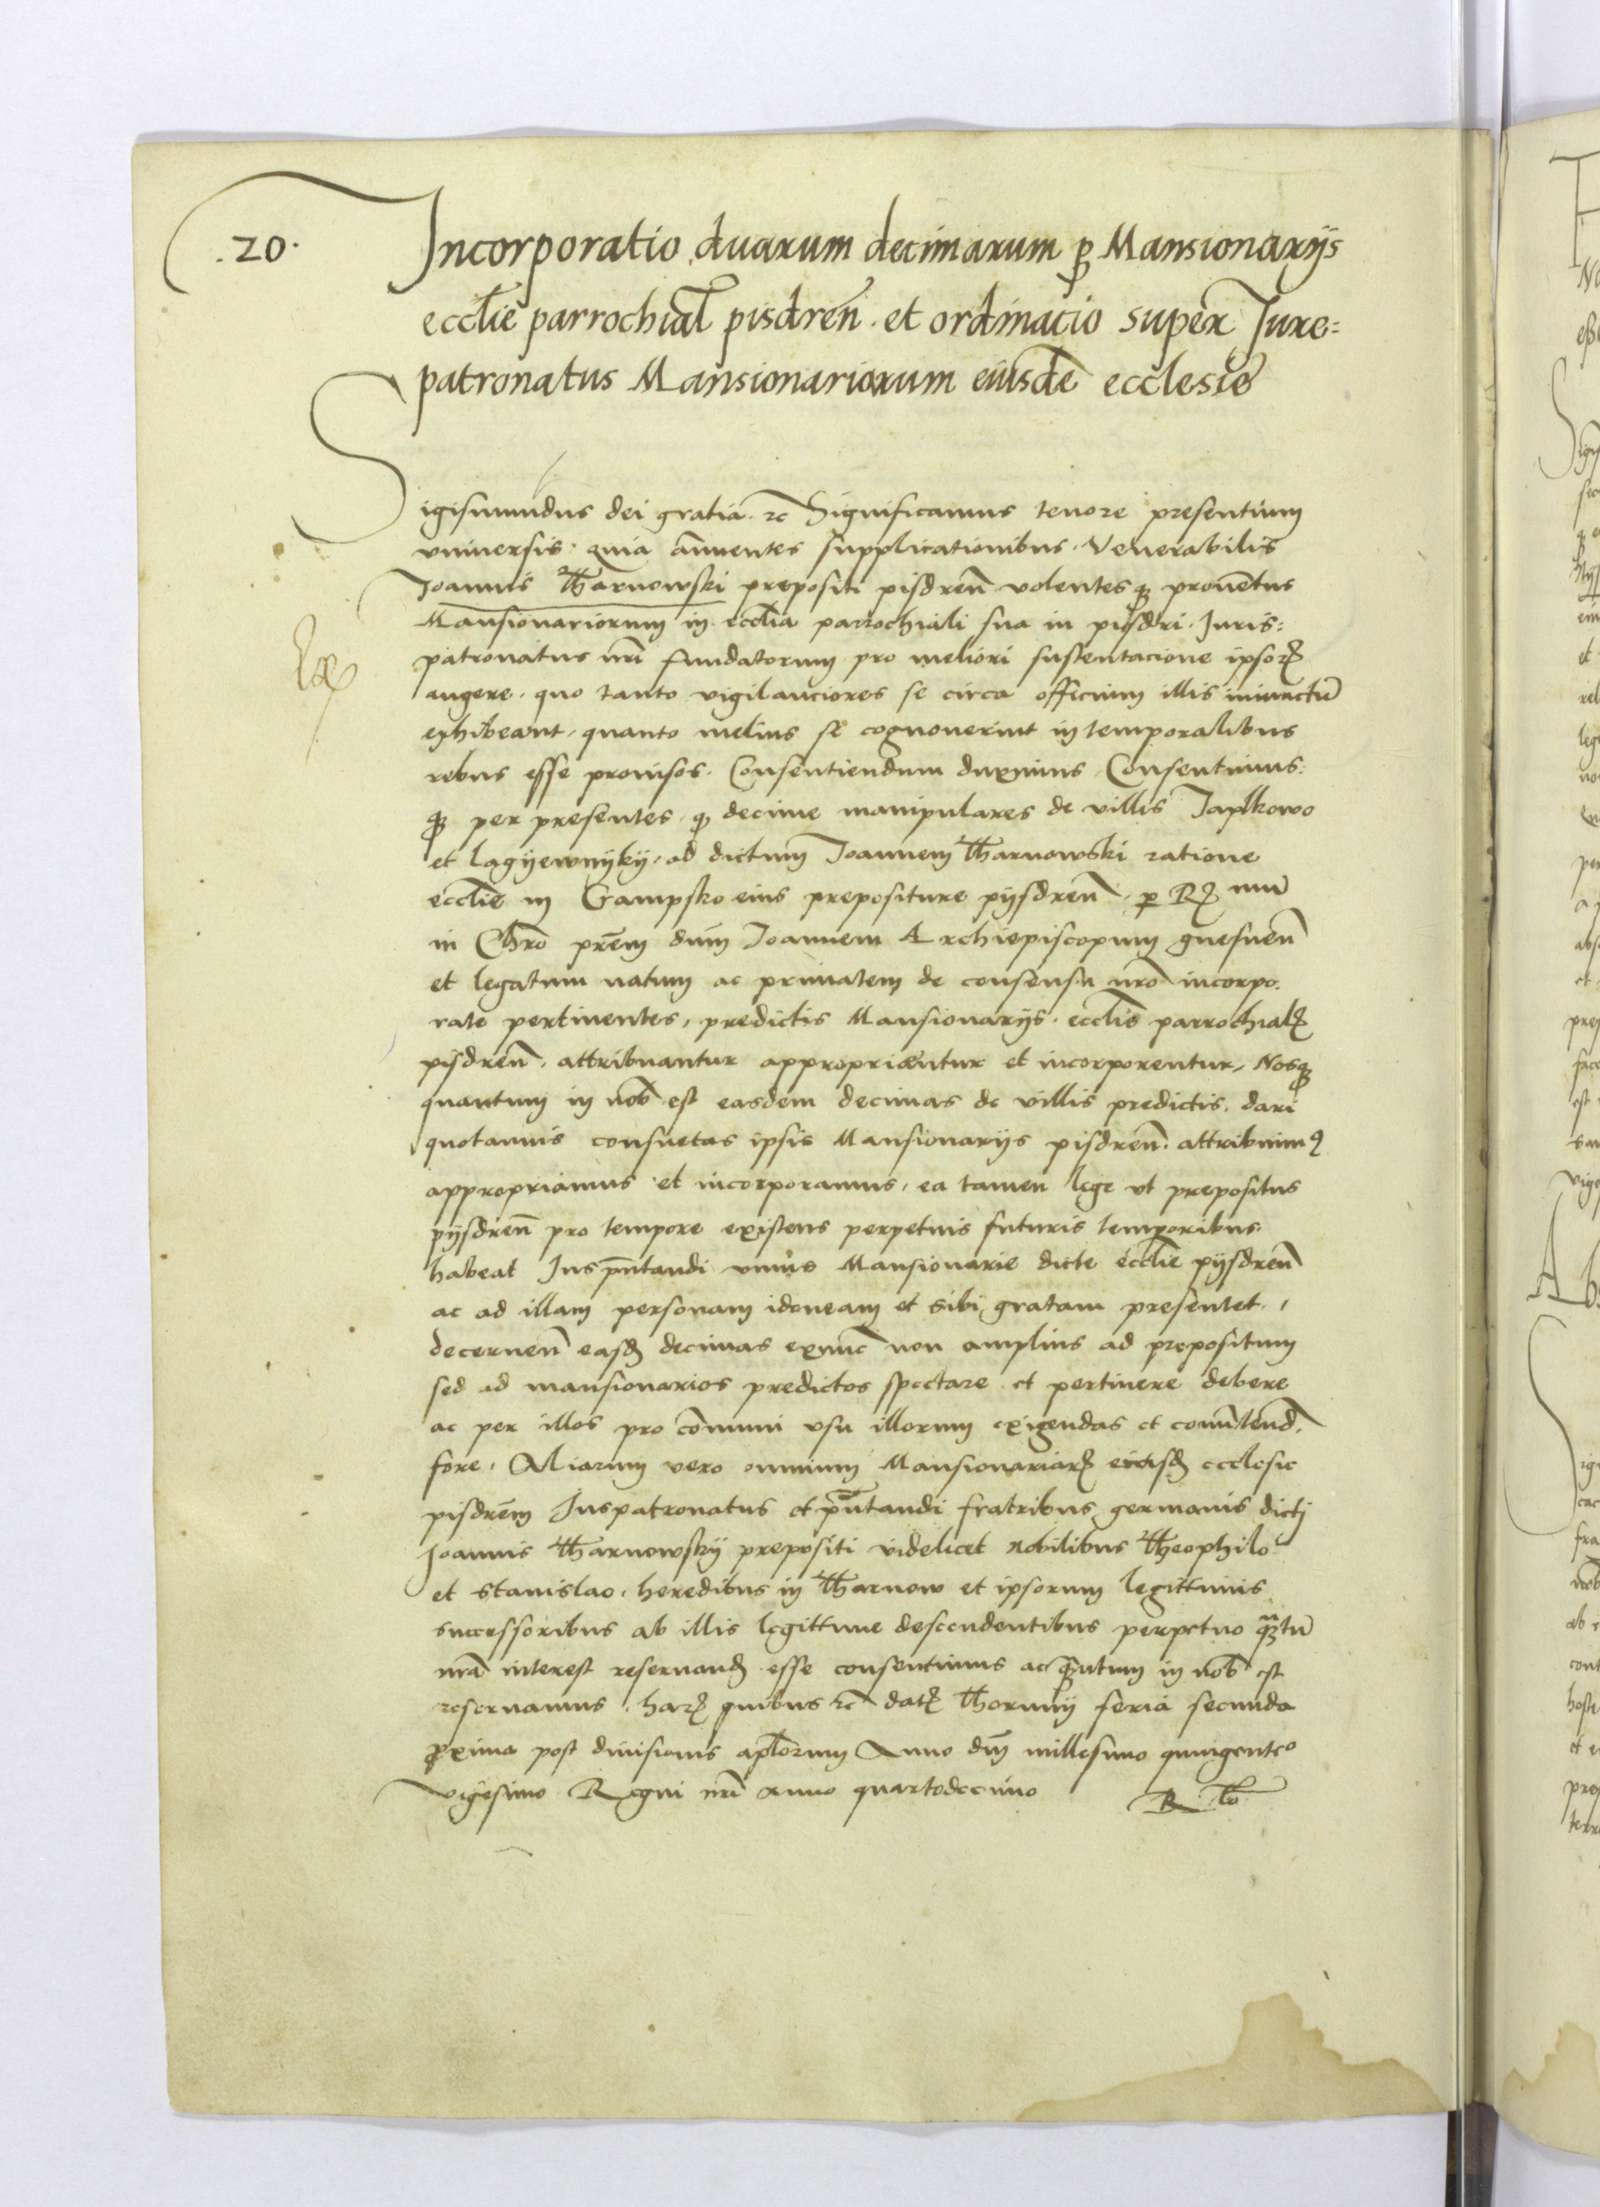 .20.
Incorporatio duarum decimarum p Mansionarijs
ecclie parrochial pisdren. et ordinacio super Jure=
patronatus Mansionariorum eiusde ecclesie
Sigismundus dei gratia. rc Significamus tenore presentium
vniuersis. quia annuentes supplicationibus. Venerabilis
Joannis Tharnowski prepositi pisdren volentesq prouentus
Mansionariorum in ecclia parrochiali sua in pisdri. Juris=
patronatus nri fundatorum pro meliori sustentacione ipsor
augere. quo tanto vigilanciores se circa officium illis iniunctu
exhibeant, quanto melius se cognouerint in temporalibus
rebus esse prouisos. Consentiendum duximus. Consentimus=
q per presentes. q decime manipulares de villis Japlkowo
et Lagyewnyky, ad dictum Joannem Tharnowski ratione
ecclie in Grampsko eius prepositure pysdren. p R mu
in Chro prem dnm Joannem Archiepiscopum gnesnen
et legatum natum ac primatem de consensu nro incorpo.
rate pertinentes, predictis Mansionarijs. ecclis parrochial
pisdren. attribuantur approprientur et incorporentur, Nosq
quantum in nob est easdem decimas de villis predictis. dari
quotannis consuetas ipsis Mansionarijs pisdren. attribuim9
appropriamus et incorporamus, ea tamen lege vt prepositus
pysdren pro tempore existens perpetuis futuris temporibus
habeat Jus pntandi vnius Mansionarie dicte ecclie pysdren
ac ad illam personam idoneam et sibi gratam presentet.,
decernen easd decimas exnuc non amplius ad prepositum
sed ad mansionarios predictos spectare et pertinere debere
ac per illos pro comuni vsu illorum exigendas et conuertend.
fore. Aliarum vero omnium Mansionariar eiusd ecclesie
pisdrem Juspatronatus et pntandi fratribus germanis dicti
Joannis Tharnowsky prepositi videlicet nobilibus Theophilo
et Stanislao, heredibus in Tharnow et ipsorum legittimis
successoribus ab illis legittime descendentibus perpetuo qtu
nra interest reseruand esse consentimus ac qntum in nob est
reseruamus. har quibus rc dat Thoruny feria secunda
proxima post diuisionis aplorum Anno dm millesimo quingento
vigesimo Regni nri anno quartodecimo